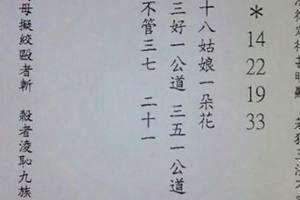 ＊ 14 22 19 33
十八姑娘一朵花
三好一公道 三五一公道
不管三七 二十一
母擬絞毆者斬 殺者淩恥九族